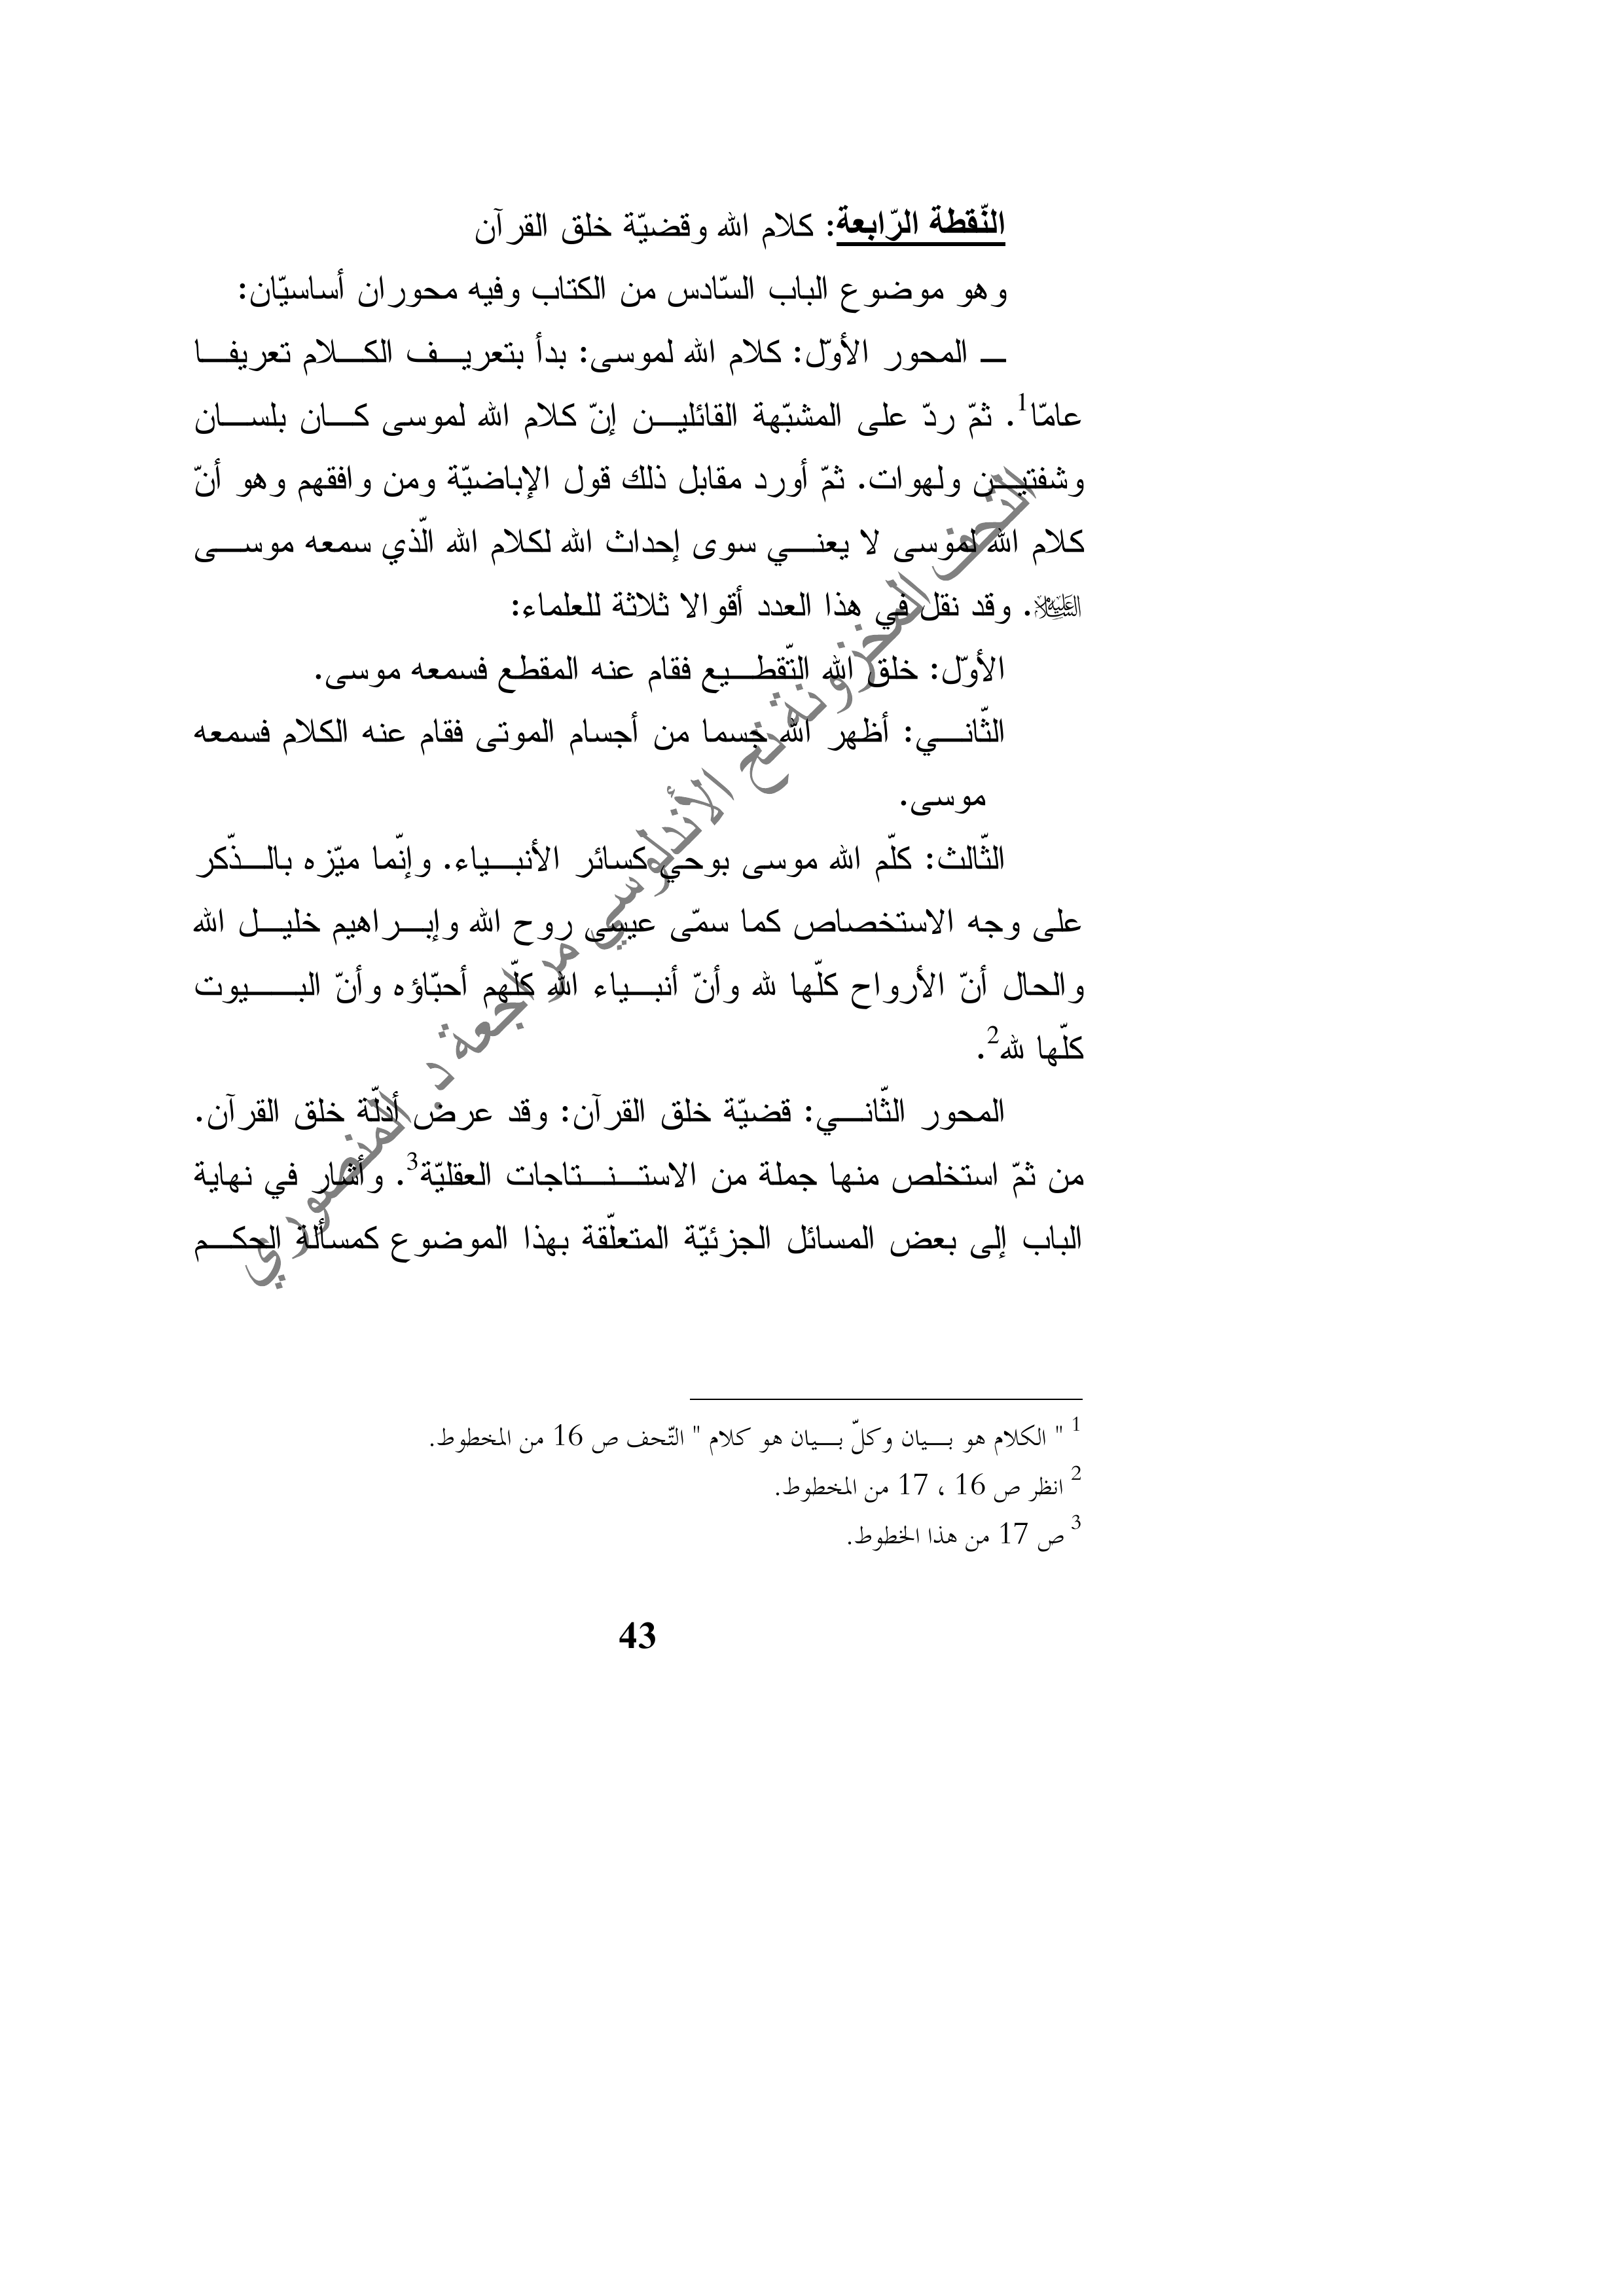 النّقطة الرّابعة: كلام الله وقضيّة خلق القرآن
وهو موضوع الباب السّادس من الكتاب وفيه محوران أساسيّان:
ـ المحور الأوّل: كلام الله لموسى: بدأ بتعريف الكلام تعريفا
عامّا1. ثمّ ردّ على المشبّهة القائلين إنّ كلام الله لموسى كان بلسان
وشفتين ولهوات. ثمّ أورد مقابل ذلك قول الإباضيّة ومن وافقهم وهو أنّ
كلام الله لموسى لا يعني سوى إحداث الله لكلام الله الّذي سمعه موسى
عليه السلام. وقد نقل في هذا العدد أقوالا ثلاثة للعلماء:
الأوّل: خلق الله التّقطيع فقام عنه المقطع فسمعه موسى.
الثّاني: أظهر الله جسما من أجسام الموتى فقام عنه الكلام فسمعه
موسى.
الثّالث: كلّم الله موسى بوحي كسائر الأنبياء. وإنّما ميّزه بالذّكر
على وجه الاستخصاص كما سمّى عيسى روح الله وإبراهيم خليل الله
والحال أنّ الأرواح كلّها لله وأنّ أنبياء الله كلّهم أحبّاؤه وأنّ البيوت
كلّها لله2.
المحور الثّاني: قضيّة خلق القرآن: وقد عرض أدلّة خلق القرآن.
من ثمّ استخلص منها جملة من الاستنتاجات العقليّة3. وأشار في نهاية
الباب إلى بعض المسائل الجزئيّة المتعلّقة بهذا الموضوع كمسألة الحكم
التحف المخزونة نخ الأندلوسي مراجعة د. المنصوري
1 " الكلام هو بيان وكلّ بيان هو كلام " التّحف ص 16 من المخطوط.
2 انظر ص 16 ، 17 من المخطوط.
3 ص 17 من هذا الخطوط.
43